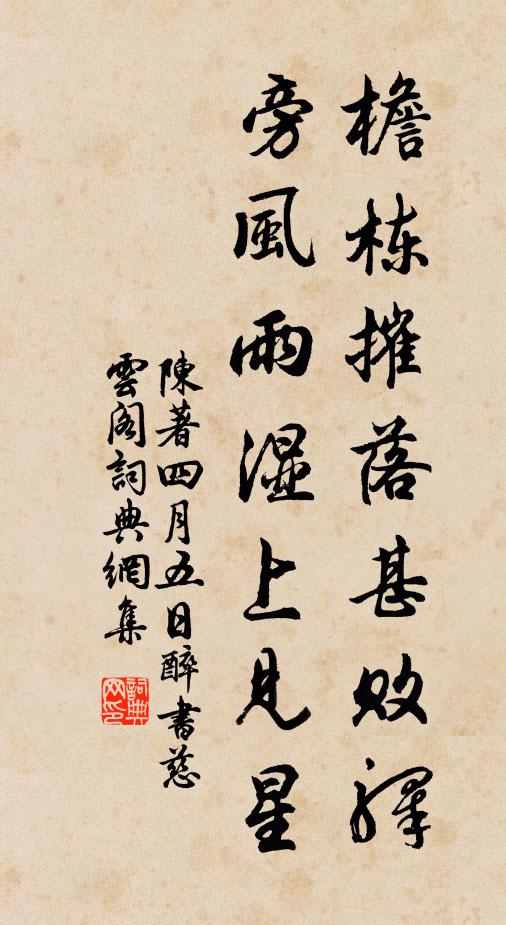 檐栋摧落甚败驿
旁風雨湿上見星
陳著四月五日醉書慈
雲阁詞典網集
詞典
网印